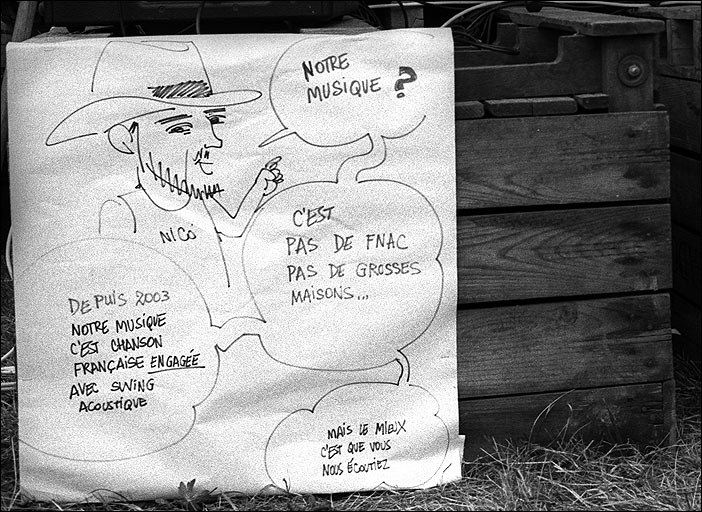 NOTRE
MUSIQUE ?
NICÓ
C'EST
PAS DE FNAC
PAS DE GROSSES
MAISONS...
DEPUIS 2003
NOTRE MUSIQUE
C'EST CHANSON
FRANÇAISE ENGAGÉE
AVEC SWING
ACOUSTIQUE
MAIS LE MIEUX
C'EST QUE VOUS
NOUS ÉCOUTIEZ